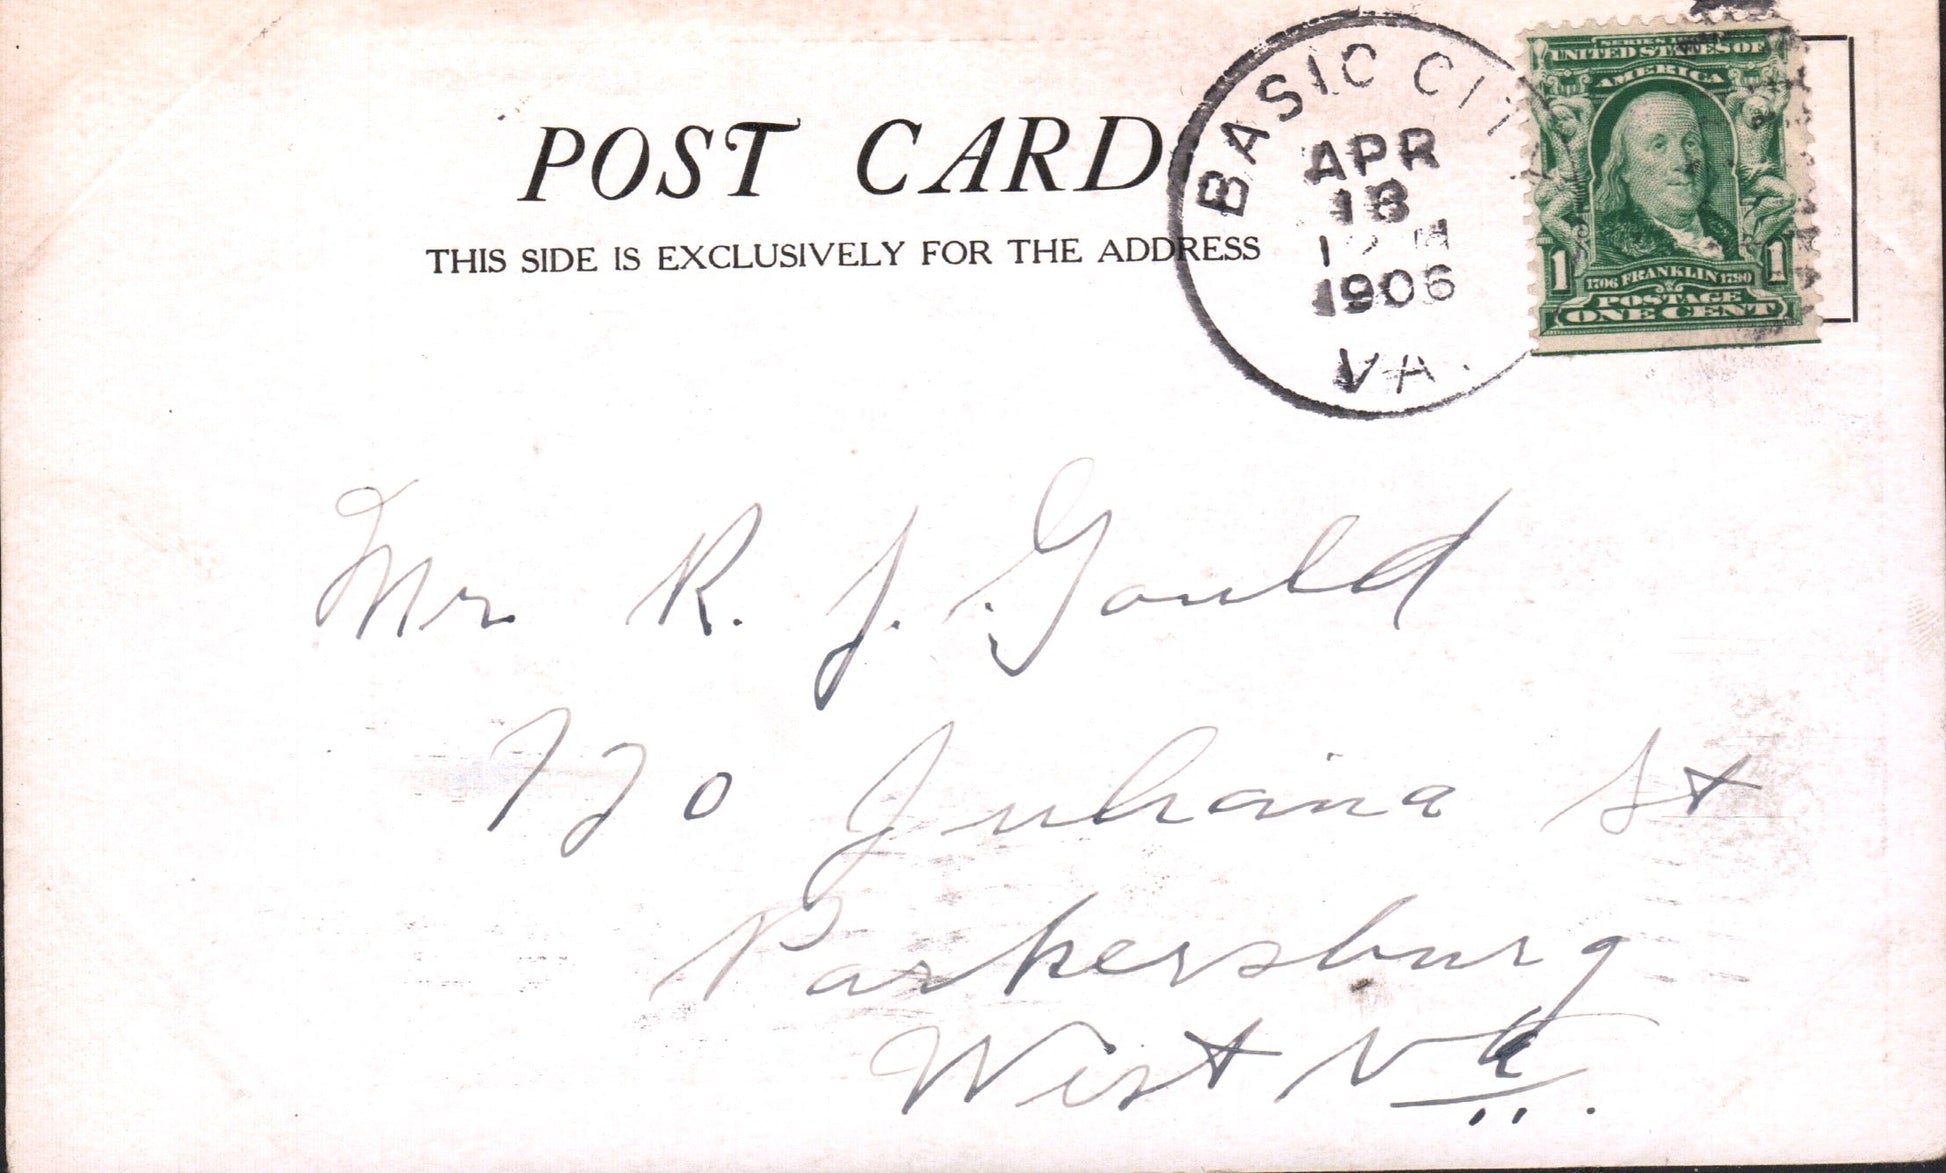 POST CARD
THIS SIDE IS EXCLUSIVELY FOR THE ADDRESS
BASIC CITY
APR
18
1906
VA.
SERIES 1902
UNITED STATES OF
AMERICA
1 1
1706 FRANKLIN 1790
POSTAGE
ONE CENT
Mr R. J. Gould
720 Juliana St
Parkersburg
West Va.